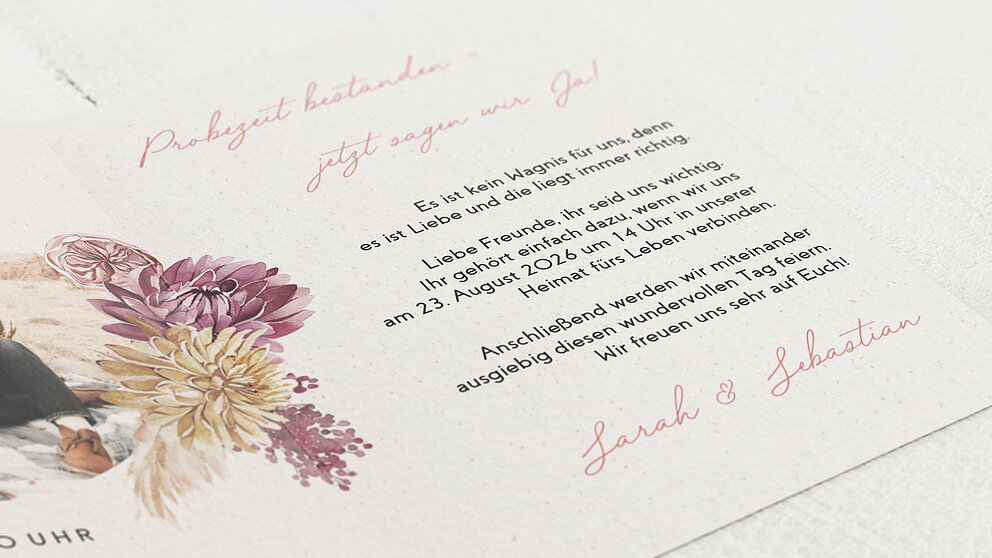 Probezeit bestanden -
jetzt sagen wir Ja!
Es ist kein Wagnis für uns, denn
es ist Liebe und die liegt immer richtig.
Liebe Freunde, ihr seid uns wichtig.
Ihr gehört einfach dazu, wenn wir uns
am 23. August 2026 um 14 Uhr in unserer
Heimat fürs Leben verbinden.
Anschließend werden wir miteinander
ausgiebig diesen wundervollen Tag feiern.
Wir freuen uns sehr auf Euch!
Sarah & Sebastian
UHR